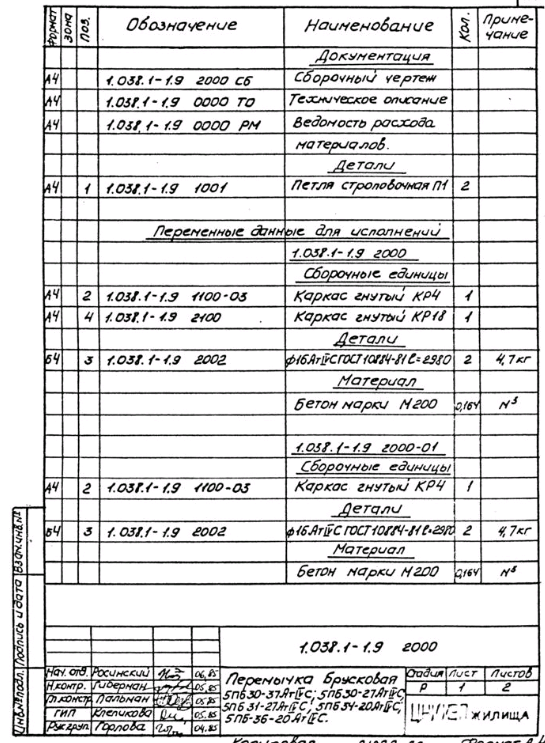 Формат Зона Поз. Обозначение Наименование Кол. Приме-чание
Документация
А4 1.038.1-1.9 2000 СБ Сборочный чертеж
А4 1.038.1-1.9 0000 ТО Техническое описание
А4 1.038.1-1.9 0000 РМ Ведомость расхода
материалов.
Детали
А4 1 1.038.1-1.9 1001 Петля строповочная П1 2
Переменные данные для исполнений
1.038.1-1.9 2000
Сборочные единицы
А4 2 1.038.1-1.9 1100-03 Каркас гнутый КР4 1
А4 4 1.038.1-1.9 2100 Каркас гнутый КР18 1
Детали
Б4 3 1.038.1-1.9 2002 ф16АтIVС ГОСТ10884-81 ℓ=2980 2 4,7кг
Материал
Бетон марки М200 0,164 м³
1.038.1-1.9 2000-01
Сборочные единицы
А4 2 1.038.1-1.9 1100-03 Каркас гнутый КР4 1
Детали
Б4 3 1.038.1-1.9 2002 ф16АтIVС ГОСТ10884-81 ℓ=2980 2 4,7кг
Материал
Бетон марки М200 0,164 м³
Инв.№подл. Подпись и дата Взам.инв.№
1.038.1-1.9 2000
Нач. отд. Росинский 06.85
Н.контр. 05.85
Гл.констр. Пальман 05.85
ГИП 05.85
Рук.груп. Горлова 04.85
Перемычка брусковая
5ПБ30-37АтIVС; 5ПБ30-27АтIVС;
5ПБ31-27АтIVС; 5ПБ34-20АтIVС;
5ПБ-36-20АтIVС.
Стадия Лист Листов
Р 1 2
ЦНИИЭП ЖИЛИЩА
Копировал
Формат А4